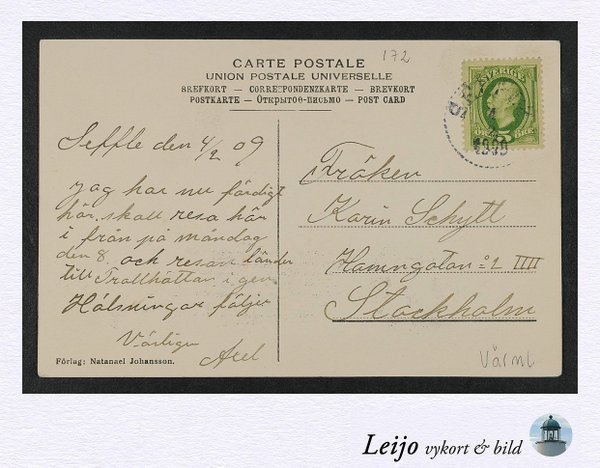 172
CARTE POSTALE
UNION POSTALE UNIVERSELLE
BREFKORT — CORRESPONDENZKARTE — BREVKORT
POSTKARTE — Открытое-письмо — POST CARD
SVERIGE
5 ÖRE
1909
Seffle den 4/2 09
Jag har nu färdigt
här, skall resa här
i från på måndag
den 8, och resan länder
till Trollhättan igen
Hälsningar följer
Vänligen
Axel
Fröken
Karin Schytt
Hamngatan 2 IIII
Stockholm
Förlag: Natanael Johansson.
Värml
Leijo vykort & bild